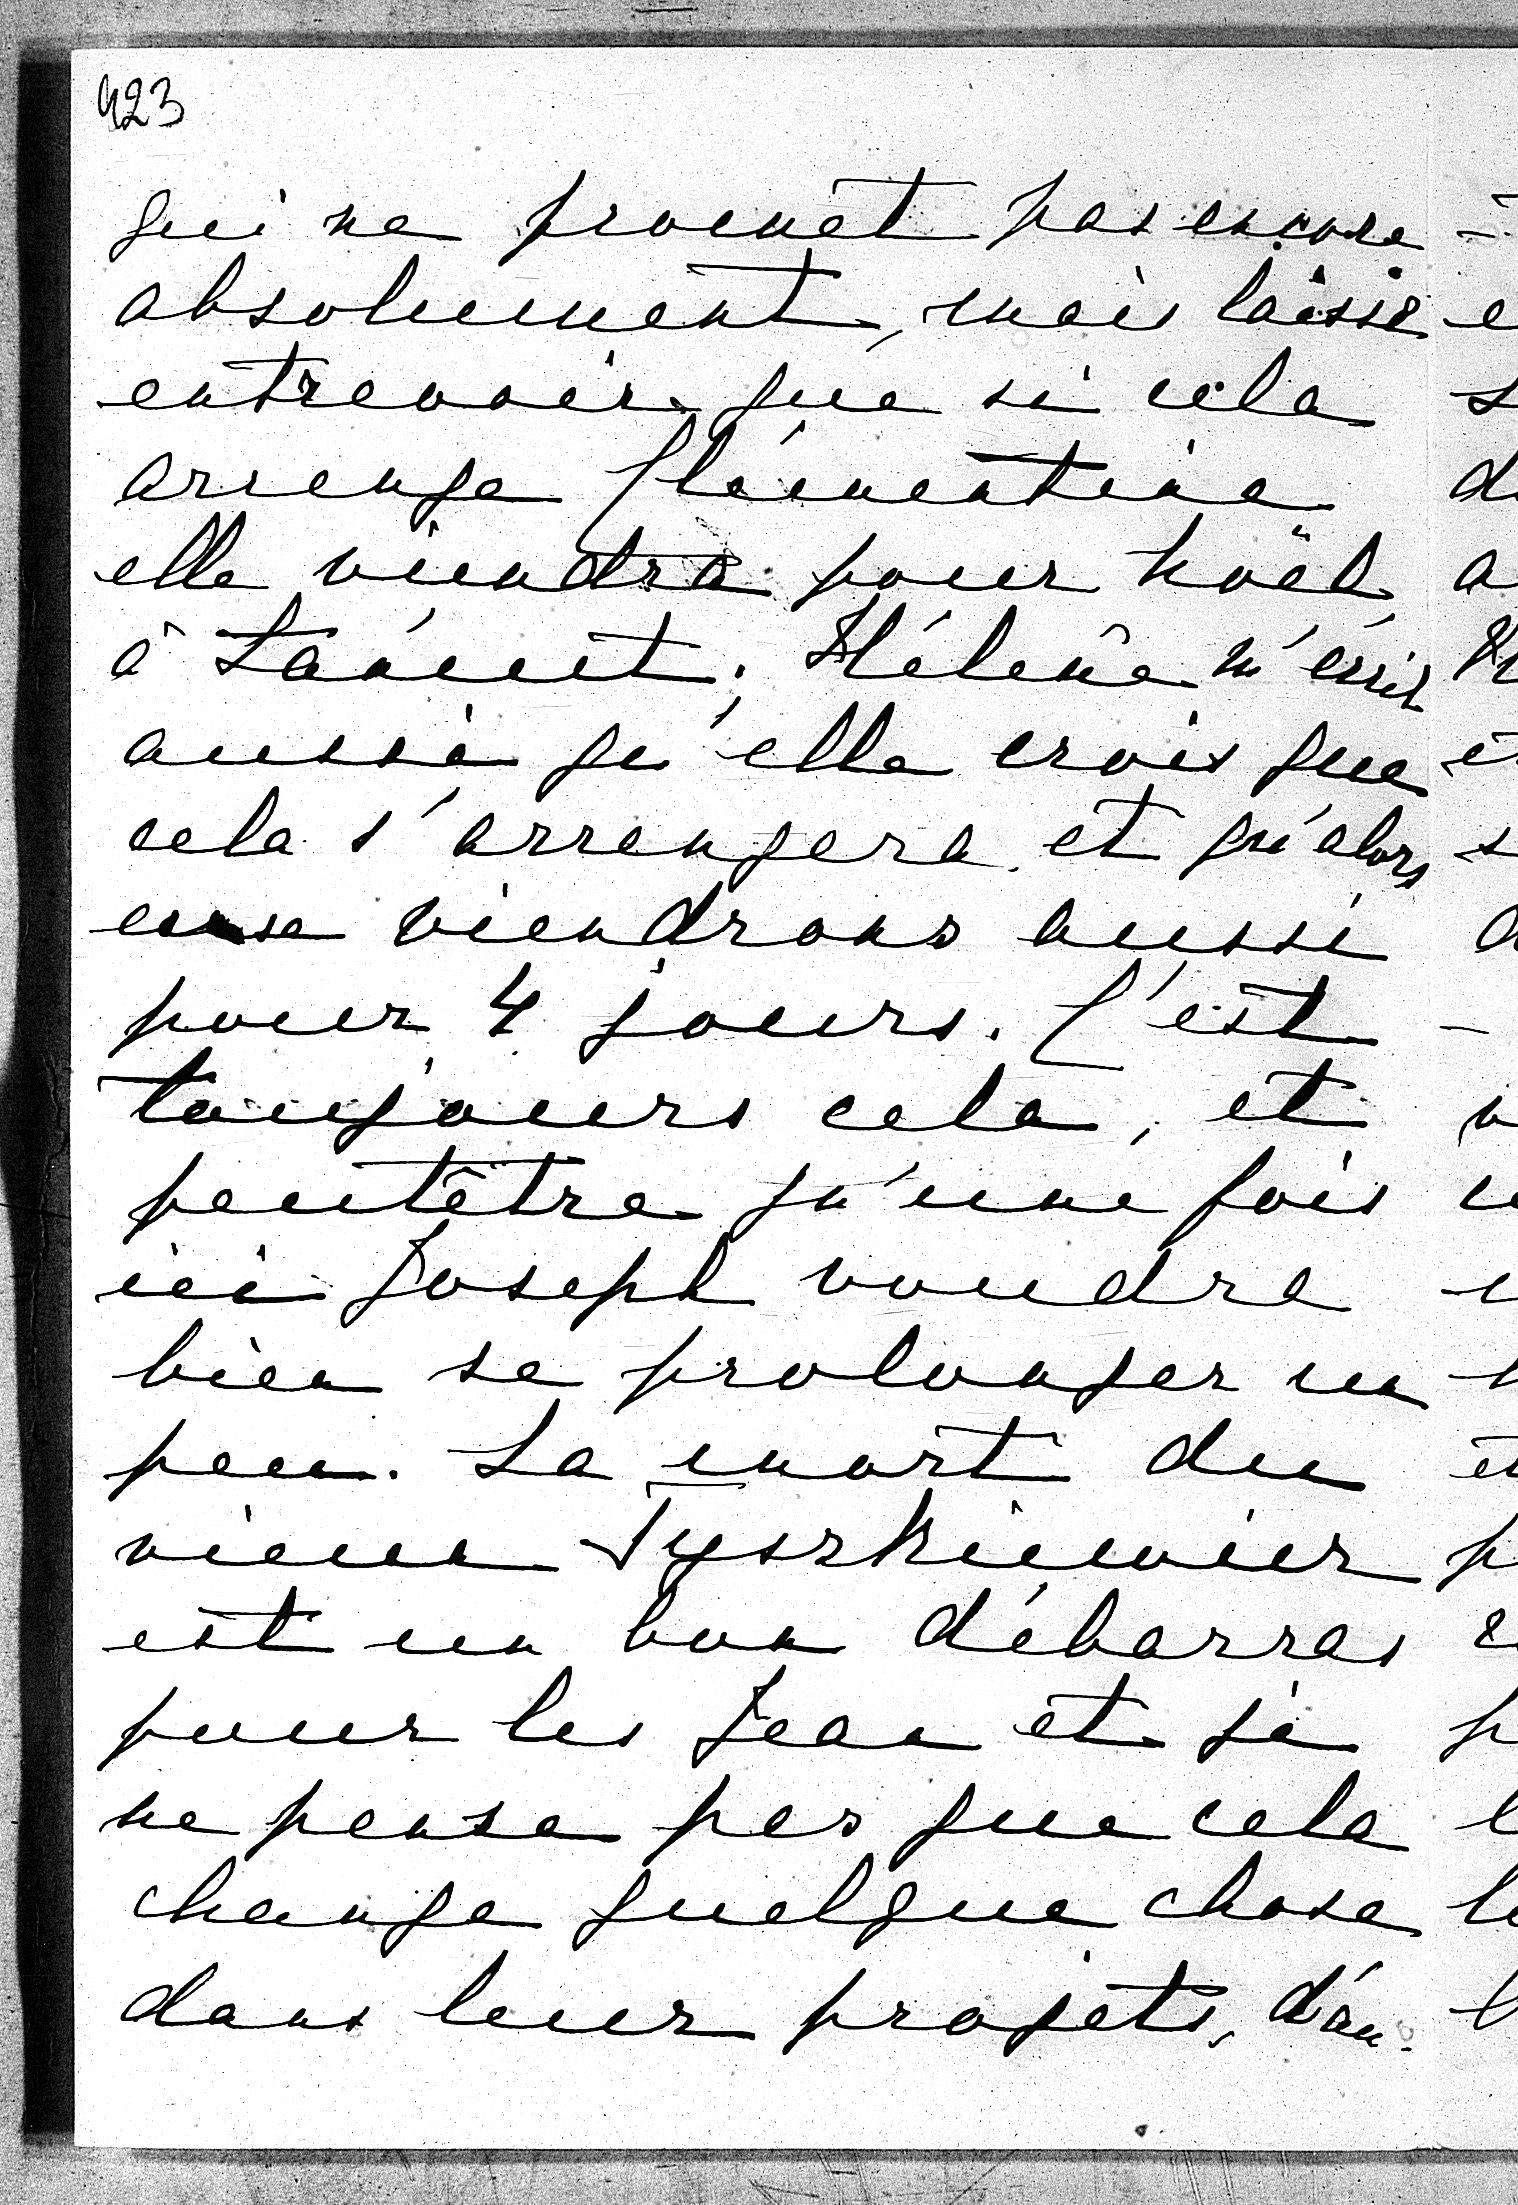 423
qui ne promet pas encore
absolument, mais laisse
entrevoir que si cela
arrange Clémentine
elle viendra pour Noël
à Łańcut; Hélène m'écrit
aussi qu'elle crois que
cela s'arrangera et qu'alors
eux viendrons aussi
pour 4 jours. C'est
toujours cela, et
peutêtre qu'une fois
ici Joseph voudra
bien se prolonger un
peu. La mort du
vieux Tyszkiewicz
est un bon débarras
pour les Jean et je
ne pense pas que cela
change quelque chose
dans leur projets, d'au-